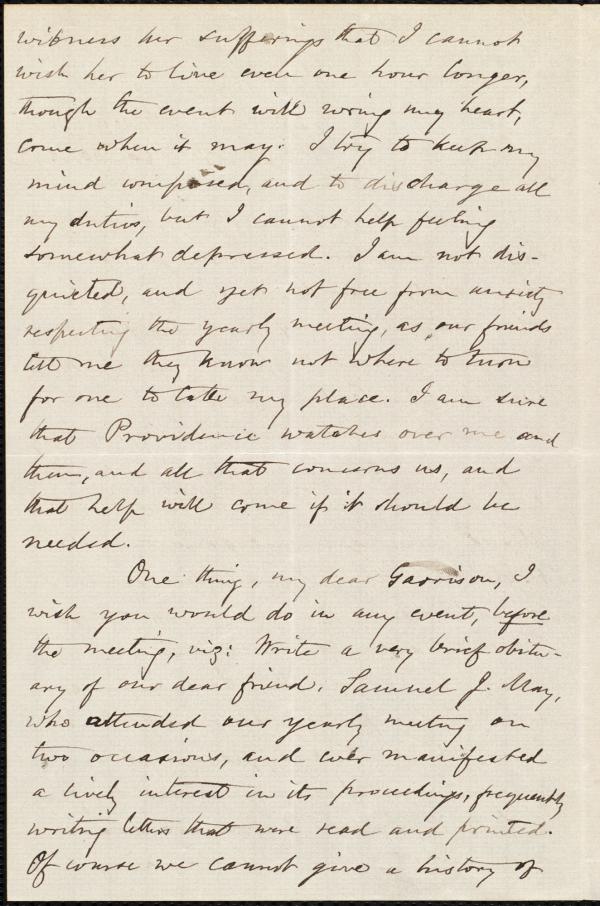 witness her sufferings that I cannot
wish her to live even one hour longer,
though the event will wring my heart,
come when it may. I try to keep my
mind composed, and to discharge all
my duties, but I cannot help feeling
somewhat depressed. I am not dis-
quieted, and yet not free from anxiety
respecting the yearly meeting, as our friends
tell me they know not where to turn
for one to take my place. I am sure
that Providence watches over me and
them, and all that concerns us, and
that help will come if it should be
needed.
One thing, my dear Garrison, I
wish you would do in any event, before
the meeting, viz: Write a very brief obitu-
ary of our dear friend, Samuel J. May,
who attended our yearly meeting on
two occasions, and ever manifested
a lively interest in its proceedings, frequently
writing letters that were read and printed.
Of course we cannot give a history of